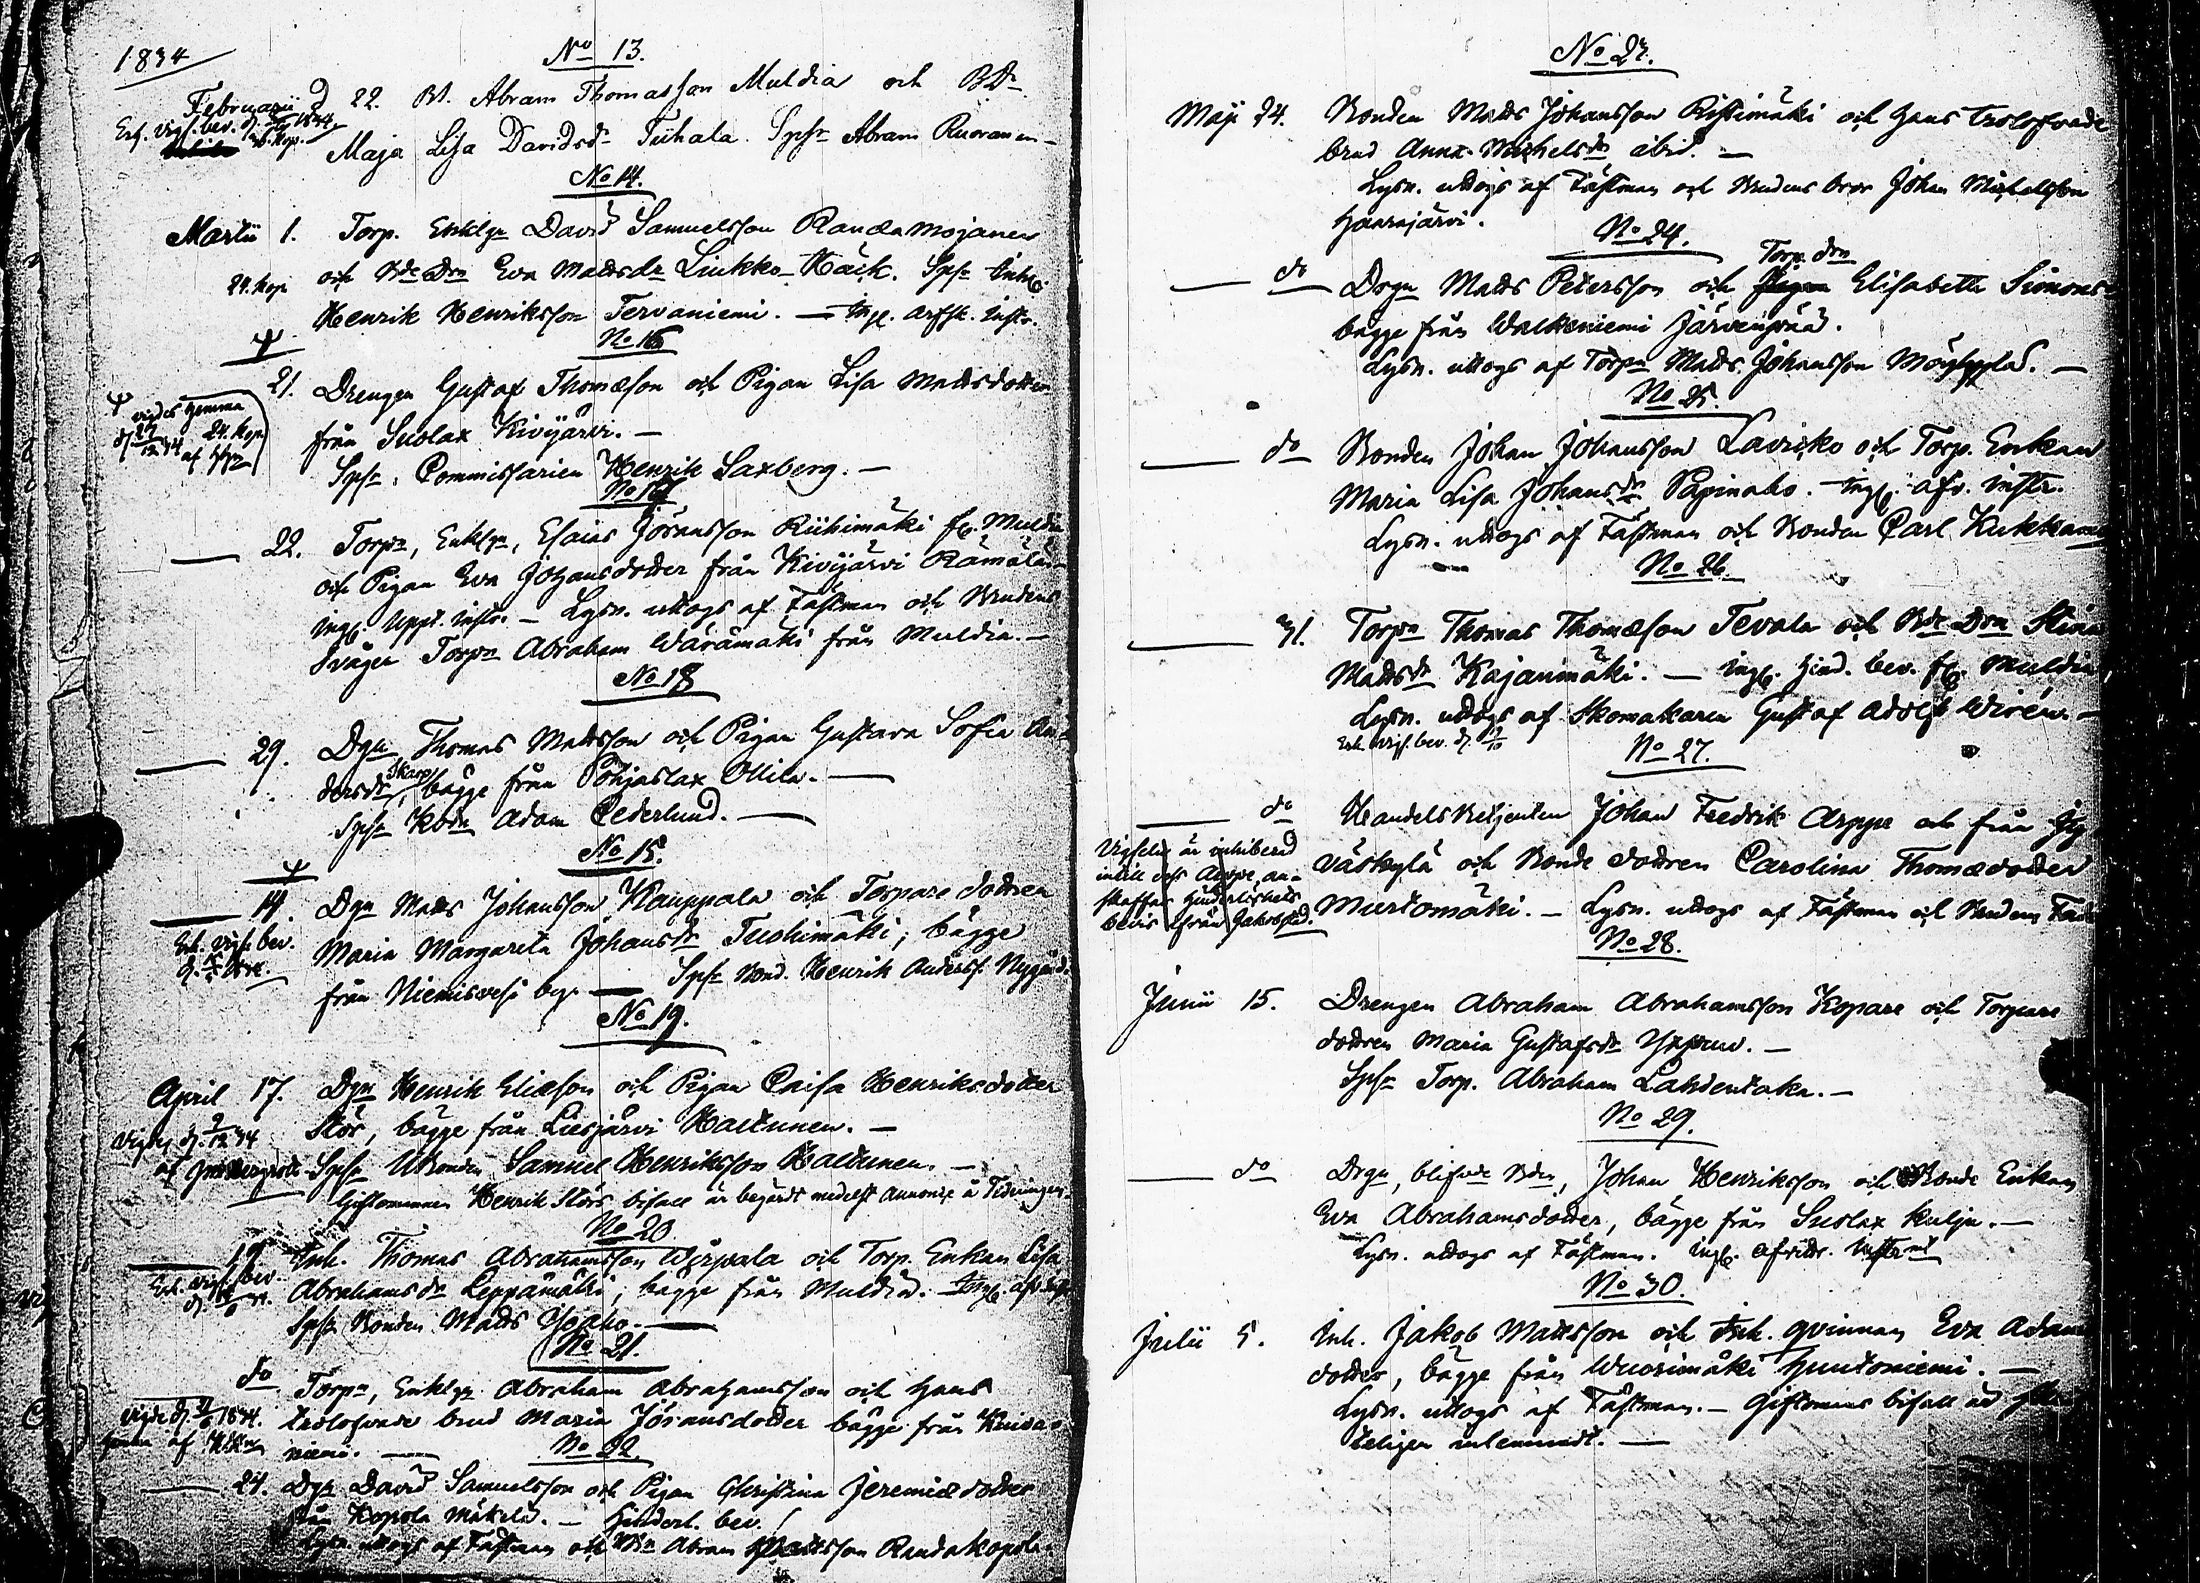 1834
No 13.
Februarii 22. Bd. Abram Thomasson Muldia och BDr
Erh. vigs. bev. d. 1834.
Maja Lisa Davidsdr Tiihala. Spsr Abram Ruoranen
No 14.
Martii 1. Torp. Enklgn David Samuelsson Randa mojanen
24. kop
och Bde Drn Eva Mattsdr Liukko-Käck. Spsr Inh.
Henrik Henriksson Tervaniemi. — Ingl. afsk. instr.
No 16
21. Drengen Gustaf Thomæson och Pigan Lisa Mattsdotter
vigdes hemma
24. kop.
från Suolax Kivijärvi. —
Spsr. Commissarien Henrik Saxberg. —
No 17
— 22. Torpn, Enklgn, Esaias Jöransson Riihimäki fr. Muldia
och Pigan Eva Johansdotter från Kivijärvi Rämälä
ingl. uppt. instr. — Lysn. uttogs af Fästman och Brudens
Svåger Torpn Abraham Wäråmäki från Muldia. —
No 18
— 29. Dgn Thomas Mattsson och Pigan Gustava Sofia An-
dersdr Skarp, bägge från Pohjaslax Ollila. —
Spsr Kbdn Adam Cederlund. —
No 15.
— 14. Dgn Matts Johansson Kauppala och Torpare dottren
Erh. vigs. bev.
Maria Margareta Johansdr Tuohimäki; bägge
från Niemisvesi by. — Spsr Bond. Henrik Anderss. Nygård.
No 19.
April 17. Dgn Henrik Eliæson och Pigan Caisa Henriksdotter
Stör, bägge från Liesjärvi Haltunen. —
vigde d. 9/12 34
Spsr Bonden Samuel Henriksson Haltunen. —
Giftomannen Henrik Störs bifall är begärdt medelst Annonce i Tidningen.
No 20
— 19 Inh. Thomas Abrahamsson Wirpala och Torp. Enkan Lisa
Erh. vigs. bev.
Abrahamsdr Leppämäki; bägge från Muldia. Ingl. afv. instr.
Spsr Bonden Matts Ypaho. —
No 21.
do Torpn, Enklgn Abraham Abrahamsson och hans
vigde d. 1834.
trolofvade brud Maria Jöransdotter bägge från Keuda-
niemi. —
No 22.
— 24. Dgn David Samuelsson och Pigan Christina Jeremiædotter
från Kopola Mäkelä. — Hinderl. bev.
Lysn uttogs af Fästman och Bdn Abram Mattsson Randakopola.
No 23.
Maji 24. Bonden Matts Johansson Ristimäki och hans trolofvade
brud Anna Michelsdr ibid. —
Lysn. uttogs af Fästman och Brudens bror Johan Michelsson
Haarajärvi.
No 24.
Torp. drn
— do Drgn Matts Petersson och Elisabeth Simons-
bägge från Walkeniemi Järvenpää.
Lysn. uttogs af Torpn Matts Johansson Möykylä. —
No 25.
— do Bonden Johan Johansson Lavikko och Torp. Enkan
Maria Lisa Johansdr Papinaho. Ingl. afv. instr.
Lysn. uttogs af Fästman och Bonden Carl Kukkamo
No 26.
— 31. Torpn Thomas Thomæson Tevala och Bde Drn Stina
Mattsdr Kajanmäki. — ingl. Hind. bev. fr. Muldia
Lysn. uttogs af Skomakaren Gustaf Adolf Wirén. —
Erh. vigs. bev. d.
No 27.
— do Handels Betjenten Johan Fredrik Arppe och från Jy-
väskylä och Bonde dottren Carolina Thomædotter
Murtomäki. — Lysn. uttogs af Fästman och Brudens Fader
Vigseln är inhiberad
intill dess Arppe an-
skaffar Hinderlöshets
bevis ifrån Jakobstad.
No 28.
Junii 15. Drengen Abraham Abrahamsson Kopare och Torpare
dottren Maria Gustafsdr. —
Spsr Torp. Abraham Lahdentaka. —
No 29.
— do Drgn, blifvde Bdn, Johan Henriksson och Bonde Enkan
Eva Abrahamsdotter, bägge från Suolax Kulju. —
Lysn. uttogs af Fästman. ingl. afvittr. Instrmt
No 30.
Julii 5. Inh. Jakob Mattsson och Inh. qvinnan Eva Adams
dotter, bägge från Wuorimäki Huutoniemi. —
Lysn. uttogs af Fästman. — Giftomans bifall är
teligen inlemnadt. —